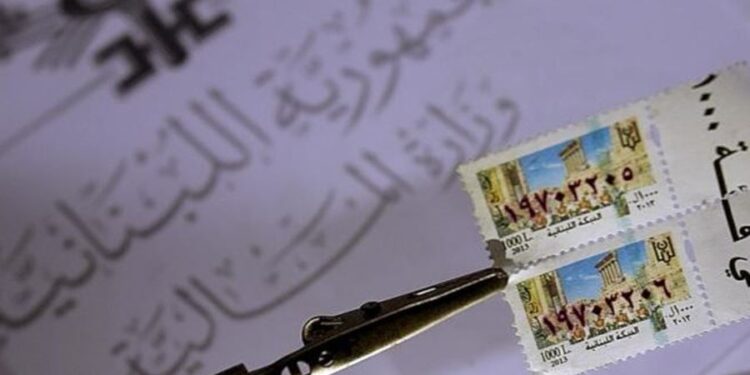 الجمهورية اللبنانية
وزارة المالية
لبنان
١٩٧٠٣٢٠٥
١٠٠٠ ل.ل
٢٠١٣
الدبكة اللبنانية
1000 L.
2013
لبنان
١٩٧٠٣٢٠٦
١٠٠٠ ل.ل
٢٠١٣
الدبكة اللبنانية
1000 L.
2013